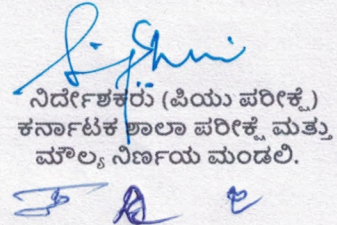 ನಿರ್ದೇಶಕರು (ಪಿಯು ಪರೀಕ್ಷೆ)
ಕರ್ನಾಟಕ ಶಾಲಾ ಪರೀಕ್ಷೆ ಮತ್ತು
ಮೌಲ್ಯ ನಿರ್ಣಯ ಮಂಡಲಿ.